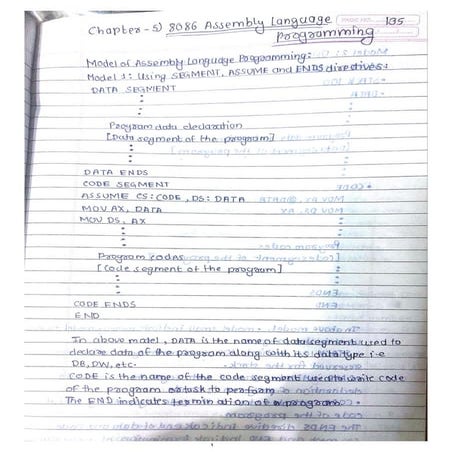 135
Chapter-5) 8086 Assembly Language
Programming
Model of Assembly Language Programming:
Model 1: Using SEGMENT, ASSUME and ENDS directives:
DATA SEGMENT
Program data declaration
[Data segment of the program]
DATA ENDS
CODE SEGMENT
ASSUME CS:CODE, DS:DATA
MOV AX, DATA
MOV DS, AX
Program codes
[Code segment of the program]
CODE ENDS
END
In above model, DATA is the name of data segment used to
declare data of the program along with its data type i.e
DB, DW, etc.
CODE is the name of the code segment used to write code
of the program or task to perform
The END indicates termination of a program.